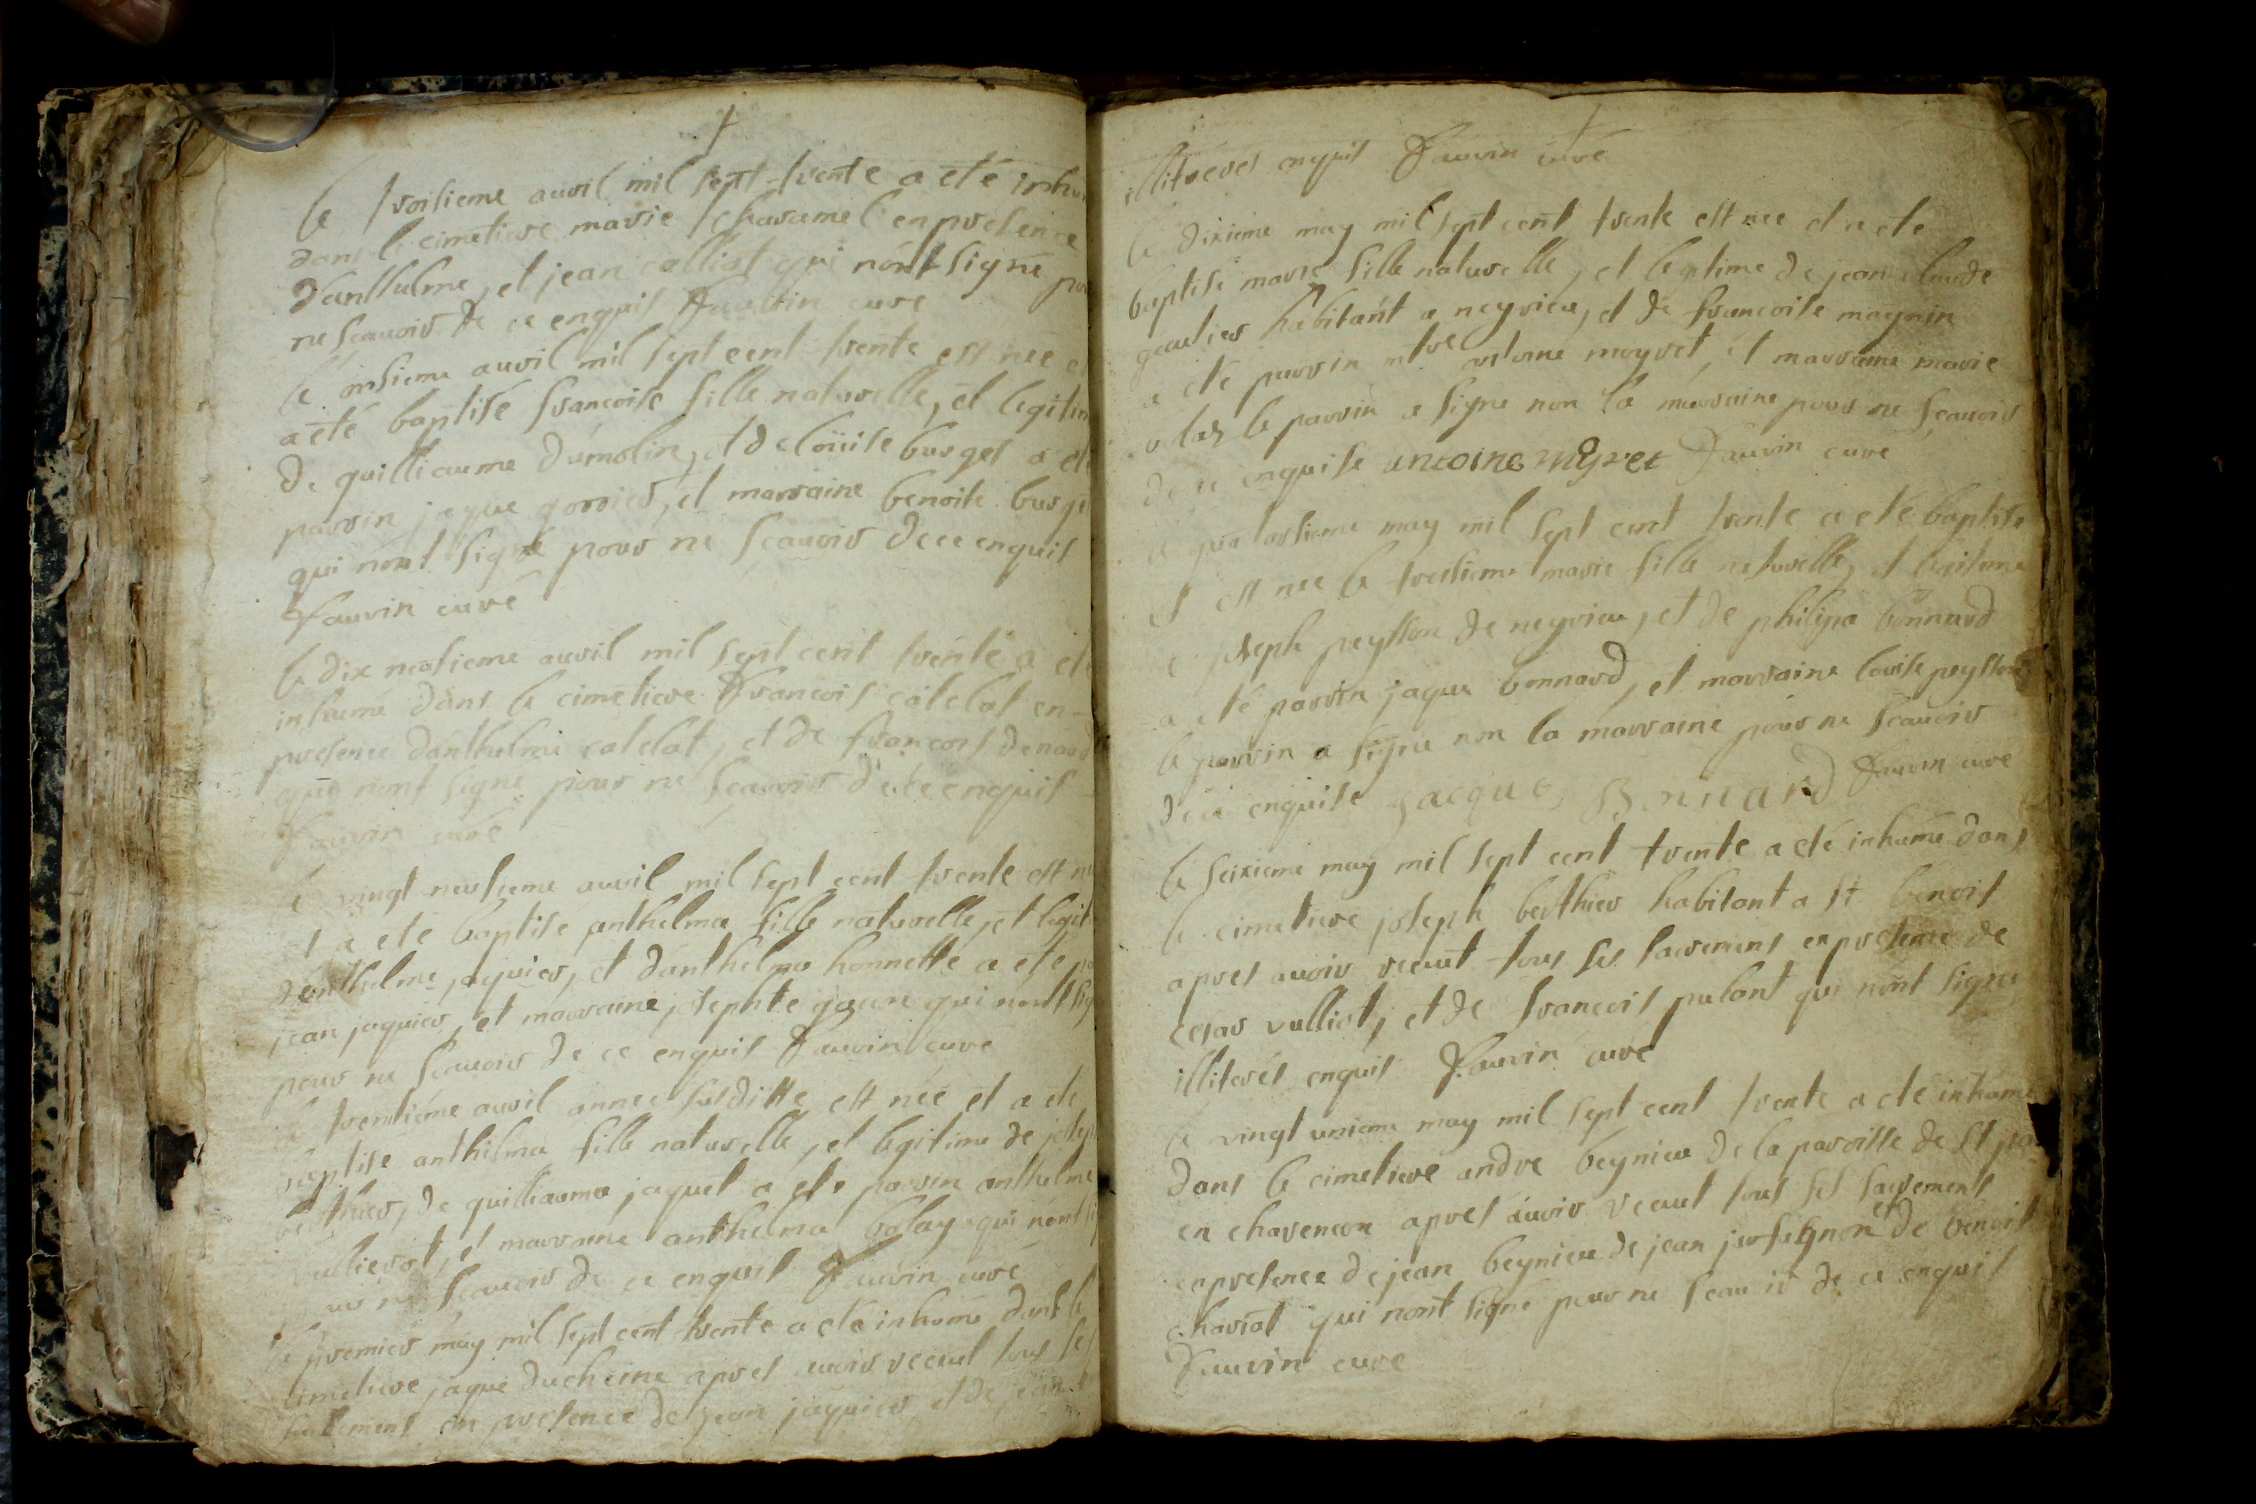 le troisieme auril mil sept trente a eté inhu
dans le cimetiere marie charamel en presence
danthulme, et jean calliot qui nont signé pou
ne scauoir de ce enquis Fauvin curé
le onsieme auril mil sept cent trente est née e
a eté baptisé francoise fille naturelle, et legitim
de guilliaume dumolin, et de loüise burges a eté
parrin jaque gorrier, et marraine benoite burge
qui nont signé pour ne scauoir de ce enquis
Fauvin curé
le dix neusieme auril mil sept cent trente a eté
inhumé dans le cimetiere francois catelat en
presence danthelme catelat, et de francois denard
qui nont signé pour ne scauoir de ce enquis
Fauvin curé
le vingt neusieme auril mil sept cent trente est né
et a eté baptisé anthelma fille naturelle, et legit
danthelme jaquier, et danthelma honnette a eté pa
jean jaquier, et marraine josephte gacon qui nont sig
pour ne scauoir de ce enquis Fauvin curé
le trentiéme auril année susditte est née et a eté
baptisé anthelma fille naturelle, et legitime de josep
berthier, de guilliauma jaquet a eté parrin anthelme
vullierot, et marraine anthelma balay qui nont si
our ne scauoir de ce enquis Fauvin curé
le premier may mil sept cent trente a eté inhumé dans le
cimetiere jaque ducheine apres auoir receut tous ses
sacrements en presence de jean jaquier et de jean
illiterés enquis Fauvin curé
le dixieme may mil sept cent trente est née et a eté
baptisé marie fille naturelle, et legitime de jean claude
gautier habitant a neyrieu, et de francoise magnin
a eté parrin mtre antoine moyret, et marraine marie
le parrin a signé non la marraine pour ne scauoir
de ce enquise antoine mÿret Fauvin curé
le quatorsieme may mil sept cent trente a eté baptisé
et est née le tresieme marie fille naturelle, et legitime
de joseph peysson de neyrieu, et de philipa bonnard
a eté parrin jaque bonnard, et marraine louise peysson
le parrin a signé non la marraine pour ne scauoir
de ce enquise Jacque Bonnard Fauvin curé
le seixieme may mil sept cent trente a eté inhumé dans
le cimetiere joseph berthier habitant a st benoit
apres auoir receut tous ses sacremens en presence de
cesar vulliot, et de francois pulant qui nont signé
illiterés enquis Fauvin curé
le vingt unieme may mil sept cent trente a eté inhumé
dans le cimetiere andre beynieu de la paroisse de st
en chavencon apres auoir receut tous ses sacrements
en presence de jean beynieu de jean et de benoit
chariot qui nont signé pour ne scauoir de ce enquis
Fauvin curé